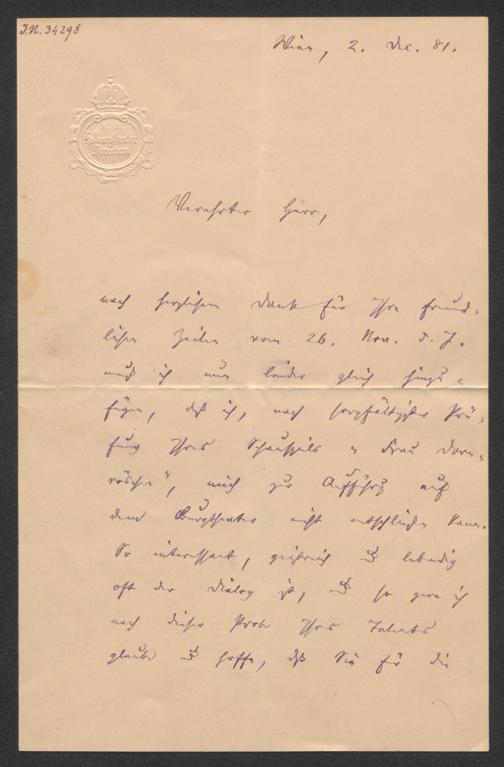 I.N. 34298
Wien, 2. Dec. 81.
Burgtheater
Direction
Verehrter Herr,
nach herzlichem Dank für Ihre freund-
lichen Zeilen vom 26. Nov. d. J.
muß ich nun leider gleich hinzu-
fügen, daß ich, nach sorgfältigster Prü-
fung Ihres Schauspiels „Frau Dorn-
röschen", mich zur Aufführg auf
dem Burgtheater nicht entschließen kann.
So interessant, geistreich u lebendig
oft der Dialog ist, u so gern ich
nach dieser Probe Ihres Talents
glaube u hoffe, daß Sie für die